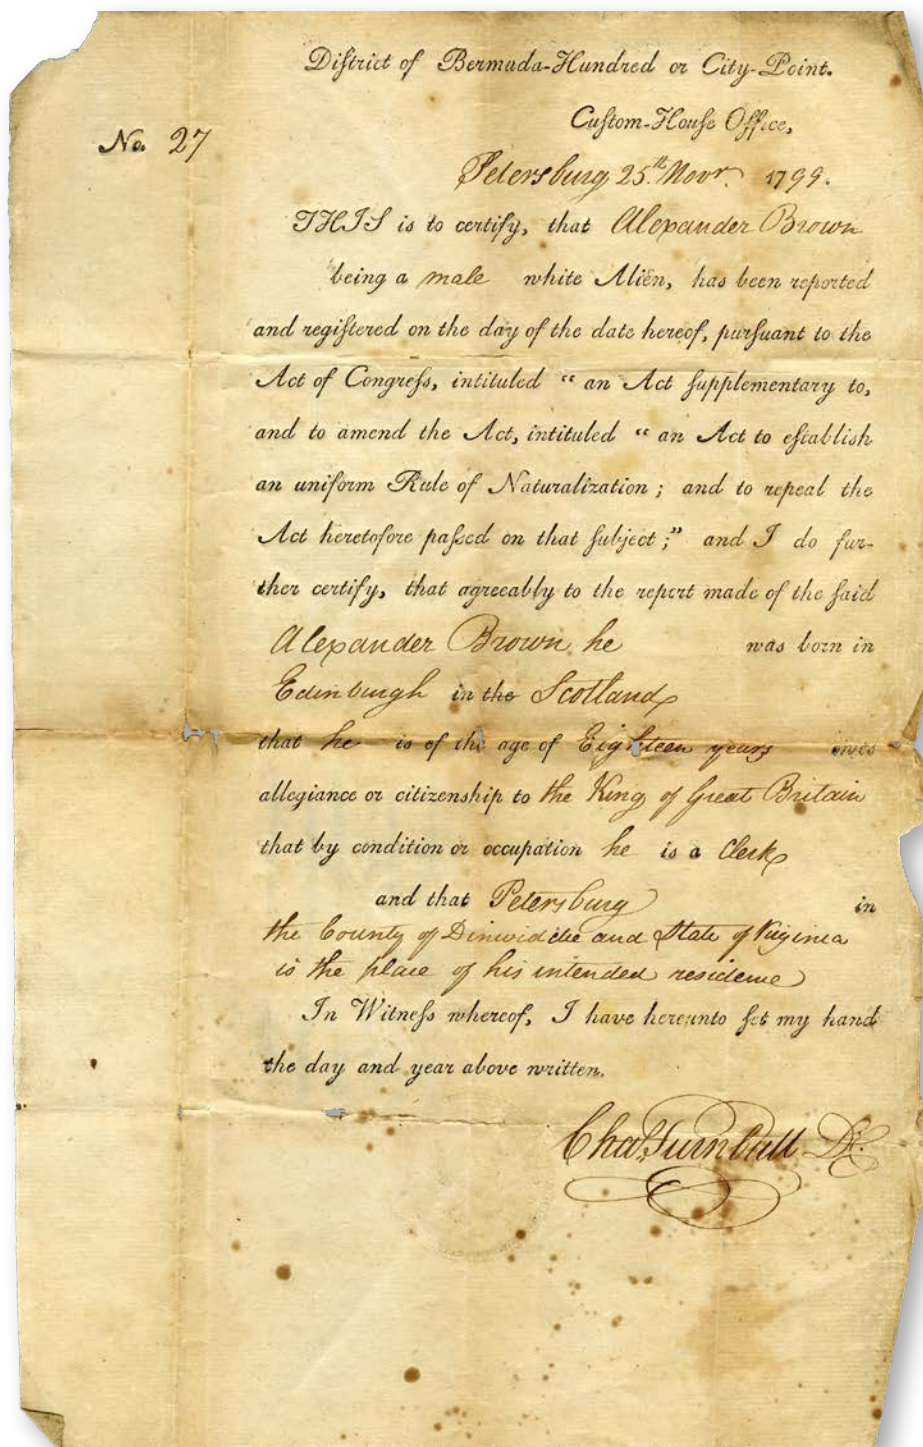 Diſtrict of Bermuda-Hundred or City-Point.
Cuſtom-Houſe Office,
No. 27
Petersburg 25th. Novr. 1799.
THIS is to certify, that Alexander Brown
being a male white Alien, has been reported
and regiſtered on the day of the date hereof, purſuant to the
Act of Congreſs, intituled “ an Act ſupplementary to,
and to amend the Act, intituled “ an Act to eſtabliſh
an uniform Rule of Naturalization ; and to repeal the
Act heretofore paſſed on that ſubject ;” and I do fur-
ther certify, that agreeably to the report made of the ſaid
Alexander Brown he was born in
Edinburgh in the Scotland
that he is of the age of Eighteen years owes
allegiance or citizenship to the King of Great Britain
that by condition or occupation he is a Clerk
and that Petersburg in
the County of Dinwiddie and State of Virginia
is the place of his intended residence
In Witneſs whereof, I have hereunto ſet my hand
the day and year above written.
Chas. Turnbull DC.